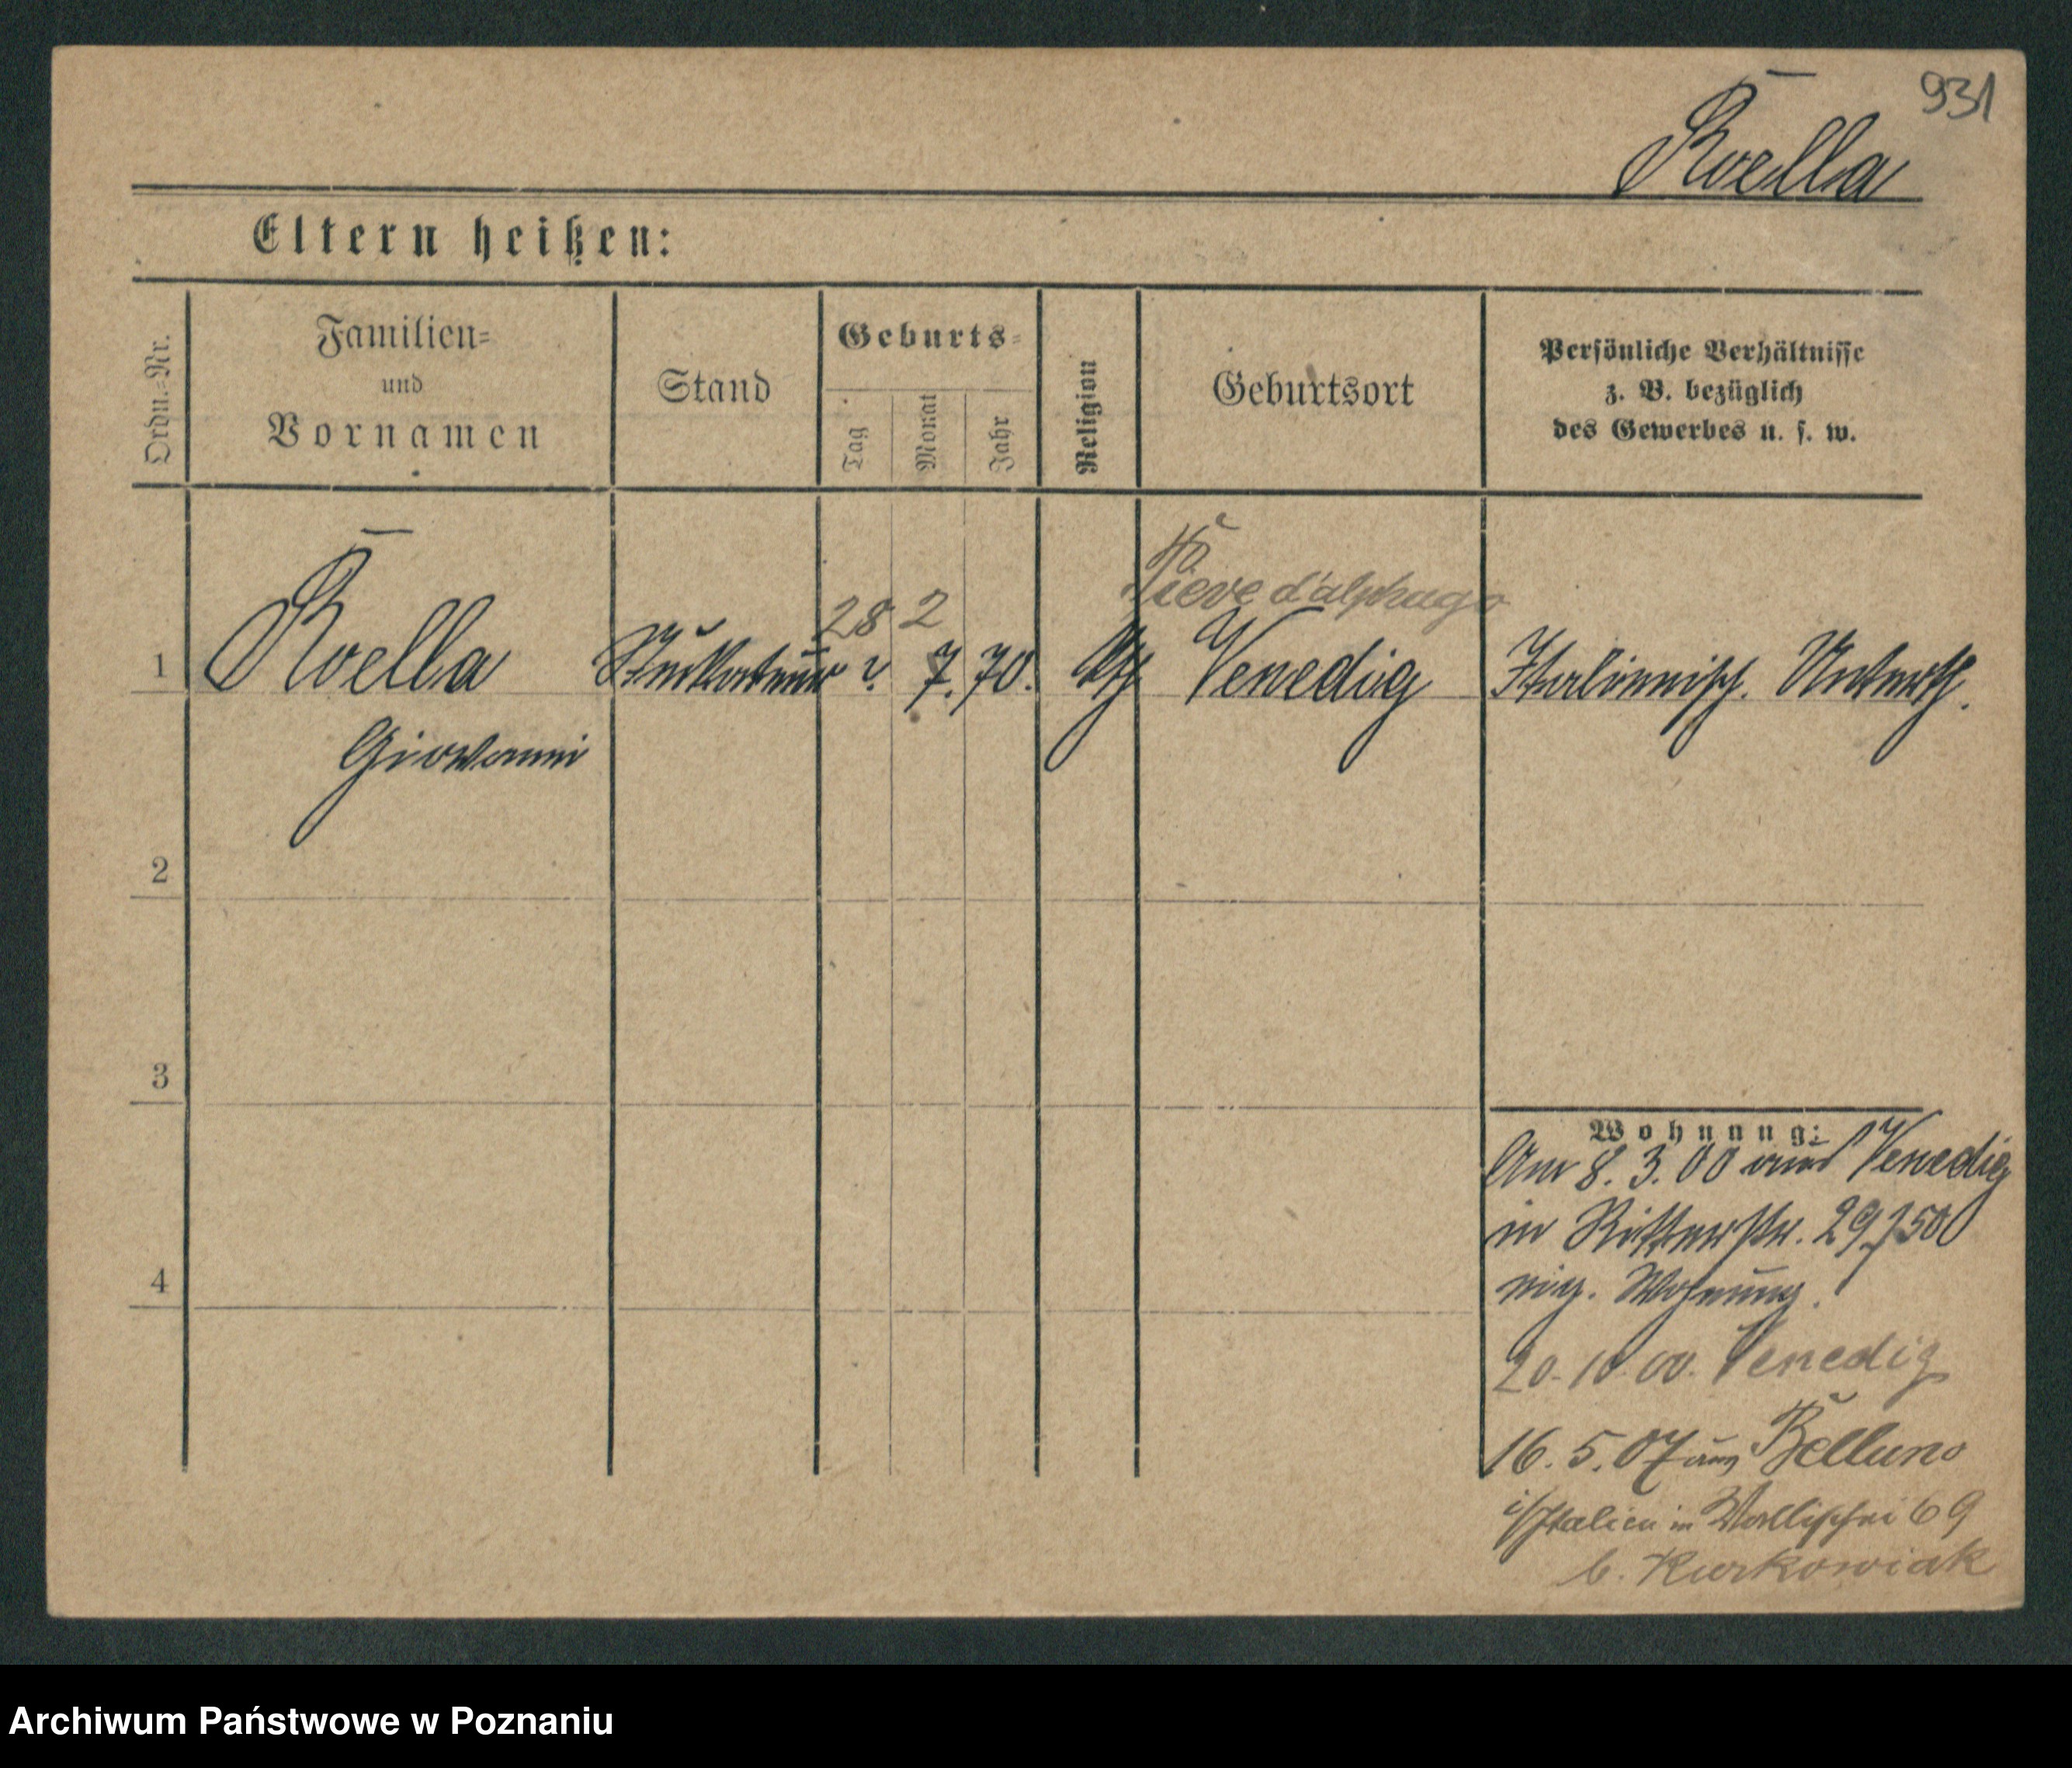 931
Roella
Eltern heißen:
Ordn.=Nr.
Familien=
und
Vornamen
Stand
Geburts=
Tag
Monat
Jahr
Religion
Geburtsort
Persönliche Verhältnisse
z. B. bezüglich
des Gewerbes u. s. w.
28 2
Pieve d'alphago
1 Roella Stuckateur 7. 70. kth Venedig Italienisch. Unterth.
Giovanni
2
3
4
Wohnung:
Am 8. 3. 00 aus Venedig
in Ritterstr. 29
Wohnung.
20. 10. 00. Venedig
16. 5. 07 aus Belluno
i/Italien in Wallischei 69
b. Kurkowiak
Archiwum Państwowe w Poznaniu